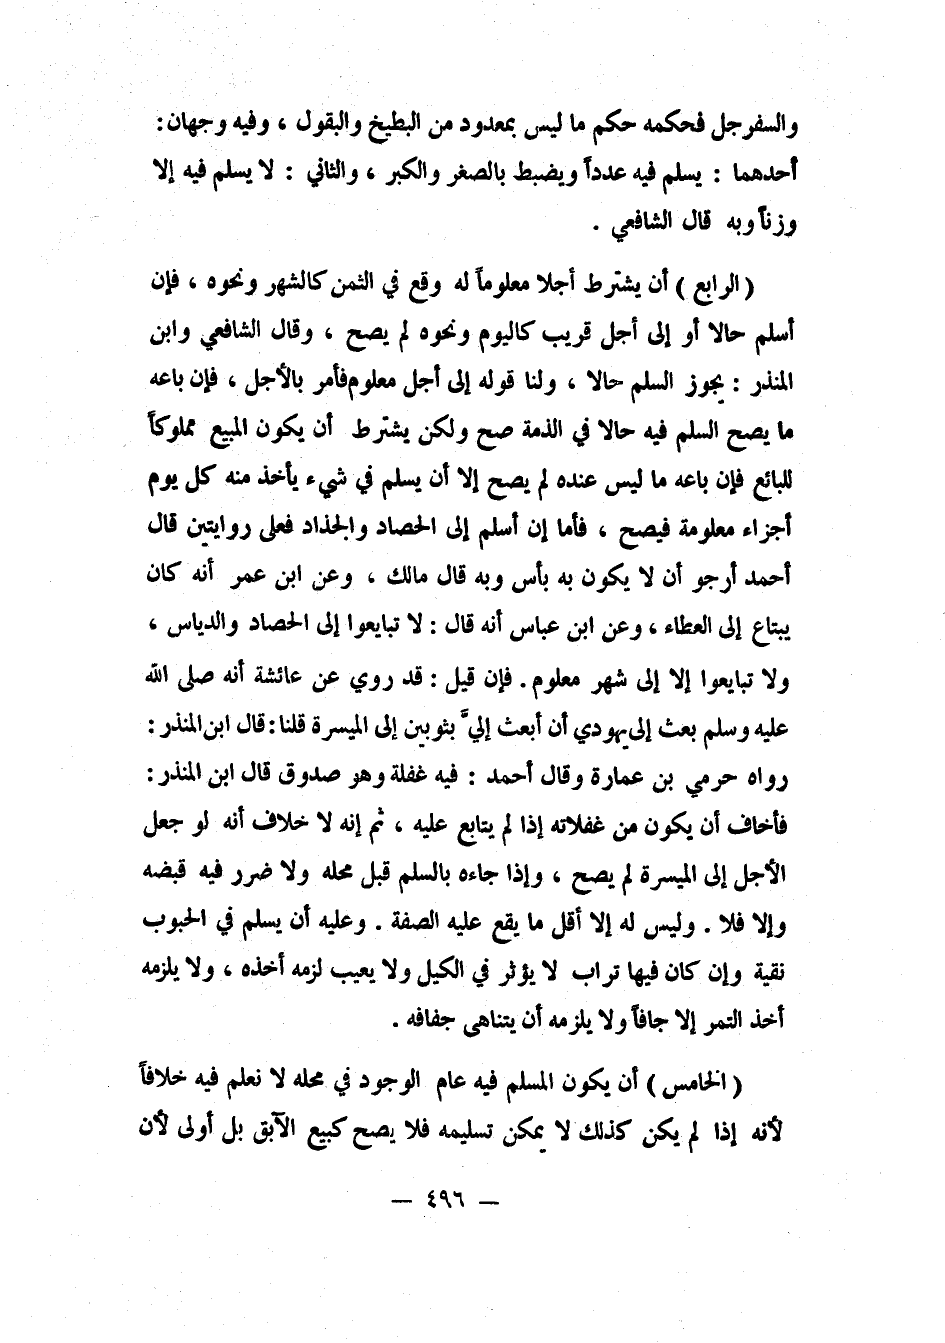 والسفرجل فحكمه حكم ما ليس بمعدود من البطيخ والبقول ، وفيه وجهان :
أحدهما : يسلم فيه عدداً ويضبط بالصغر والكبر ، والثاني : لا يسلم فيه إلا
وزناً وبه قال الشافعي .
( الرابع ) أن يشترط أجلا معلوماً له وقع في الثمن كالشهر ونحوه ، فإن
أسلم حالا أو إلى أجل قريب كاليوم ونحوه لم يصح ، وقال الشافعي وابن
المنذر : يجوز السلم حالا ، ولنا قوله إلى أجل معلوم فأمر بالأجل ، فإن باعه
ما يصح السلم فيه حالا في الذمة صح ولكن يشترط أن يكون المبيع مملوكاً
للبائع فإن باعه ما ليس عنده لم يصح إلا أن يسلم في شيء يأخذ منه كل يوم
أجزاء معلومة فيصح ، فأما إن أسلم إلى الحصاد والجذاد فعلى روايتين قال
أحمد أرجو أن لا يكون به بأس وبه قال مالك ، وعن ابن عمر أنه كان
يبتاع إلى العطاء ، وعن ابن عباس أنه قال : لا تبايعوا إلى الحصاد والدياس ،
ولا تبايعوا إلا إلى شهر معلوم . فإن قيل : قد روي عن عائشة أنه صلى الله
عليه وسلم بعث إلى يهودي أن أبعث إليَّ بثوبين إلى الميسرة قلنا : قال ابن المنذر :
رواه حرمي بن عمارة وقال أحمد : فيه غفلة وهو صدوق قال ابن المنذر :
فأخاف أن يكون من غفلاته إذا لم يتابع عليه ، ثم إنه لا خلاف أنه لو جعل
الأجل إلى الميسرة لم يصح ، وإذا جاءه بالسلم قبل محله ولا ضرر فيه قبضه
وإلا فلا . وليس له إلا أقل ما يقع عليه الصفة . وعليه أن يسلم في الحبوب
نقية وإن كان فيها تراب لا يؤثر في الكيل ولا يعيب لزمه أخذه ، ولا يلزمه
أخذ التمر إلا جافاً ولا يلزمه أن يتناهى جفافه .
( الخامس ) أن يكون المسلم فيه عام الوجود في محله لا نعلم فيه خلافاً
لأنه إذا لم يكن كذلك لا يمكن تسليمه فلا يصح كبيع الآبق بل أولى لأن
— ٤٩٦ —